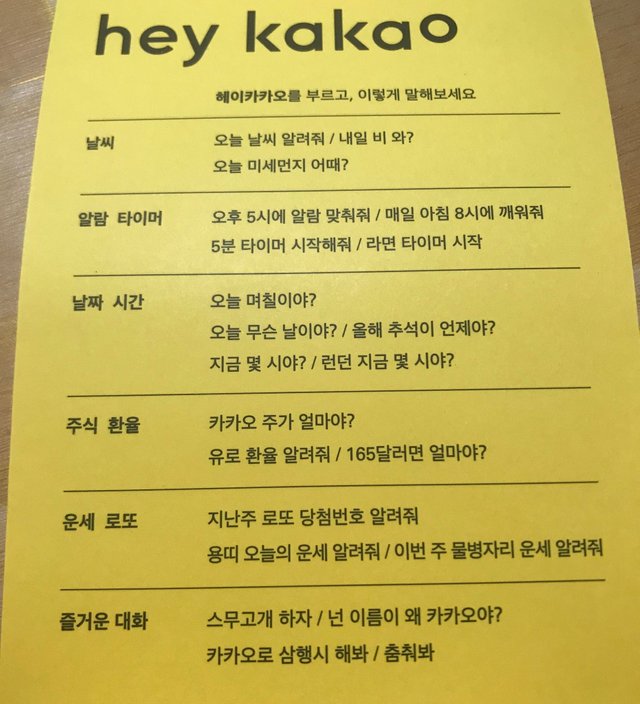 hey kakao
헤이카카오를 부르고, 이렇게 말해보세요
날씨 오늘 날씨 알려줘 / 내일 비 와?
오늘 미세먼지 어때?
알람 타이머 오후 5시에 알람 맞춰줘 / 매일 아침 8시에 깨워줘
5분 타이머 시작해줘 / 라면 타이머 시작
날짜 시간 오늘 며칠이야?
오늘 무슨 날이야? / 올해 추석이 언제야?
지금 몇 시야? / 런던 지금 몇 시야?
주식 환율 카카오 주가 얼마야?
유로 환율 알려줘 / 165달러면 얼마야?
운세 로또 지난주 로또 당첨번호 알려줘
용띠 오늘의 운세 알려줘 / 이번 주 물병자리 운세 알려줘
즐거운 대화 스무고개 하자 / 넌 이름이 왜 카카오야?
카카오로 삼행시 해봐 / 춤춰봐